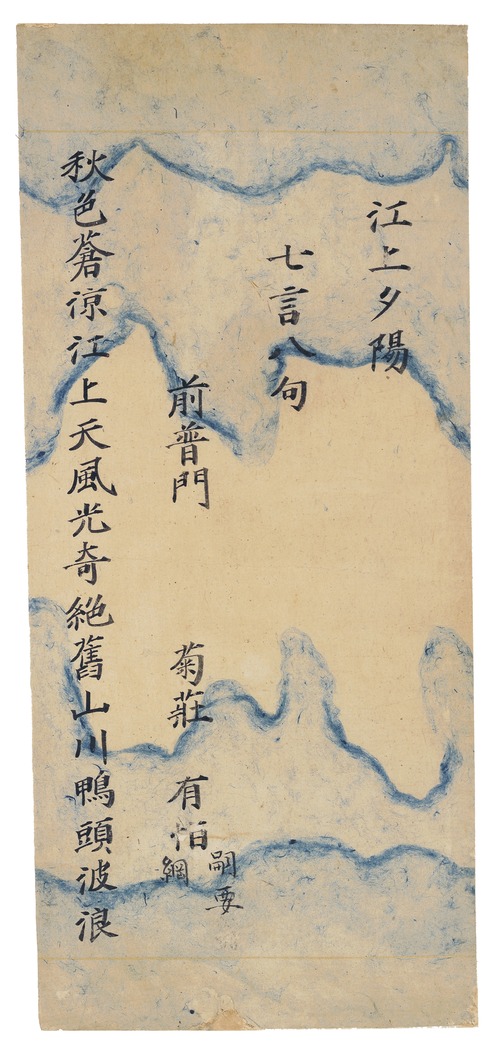 江上夕陽
七言八句
前普門 菊莊 有
嗣要
綱
秋色蒼涼江上天風光奇絶舊山川鴨頭波浪